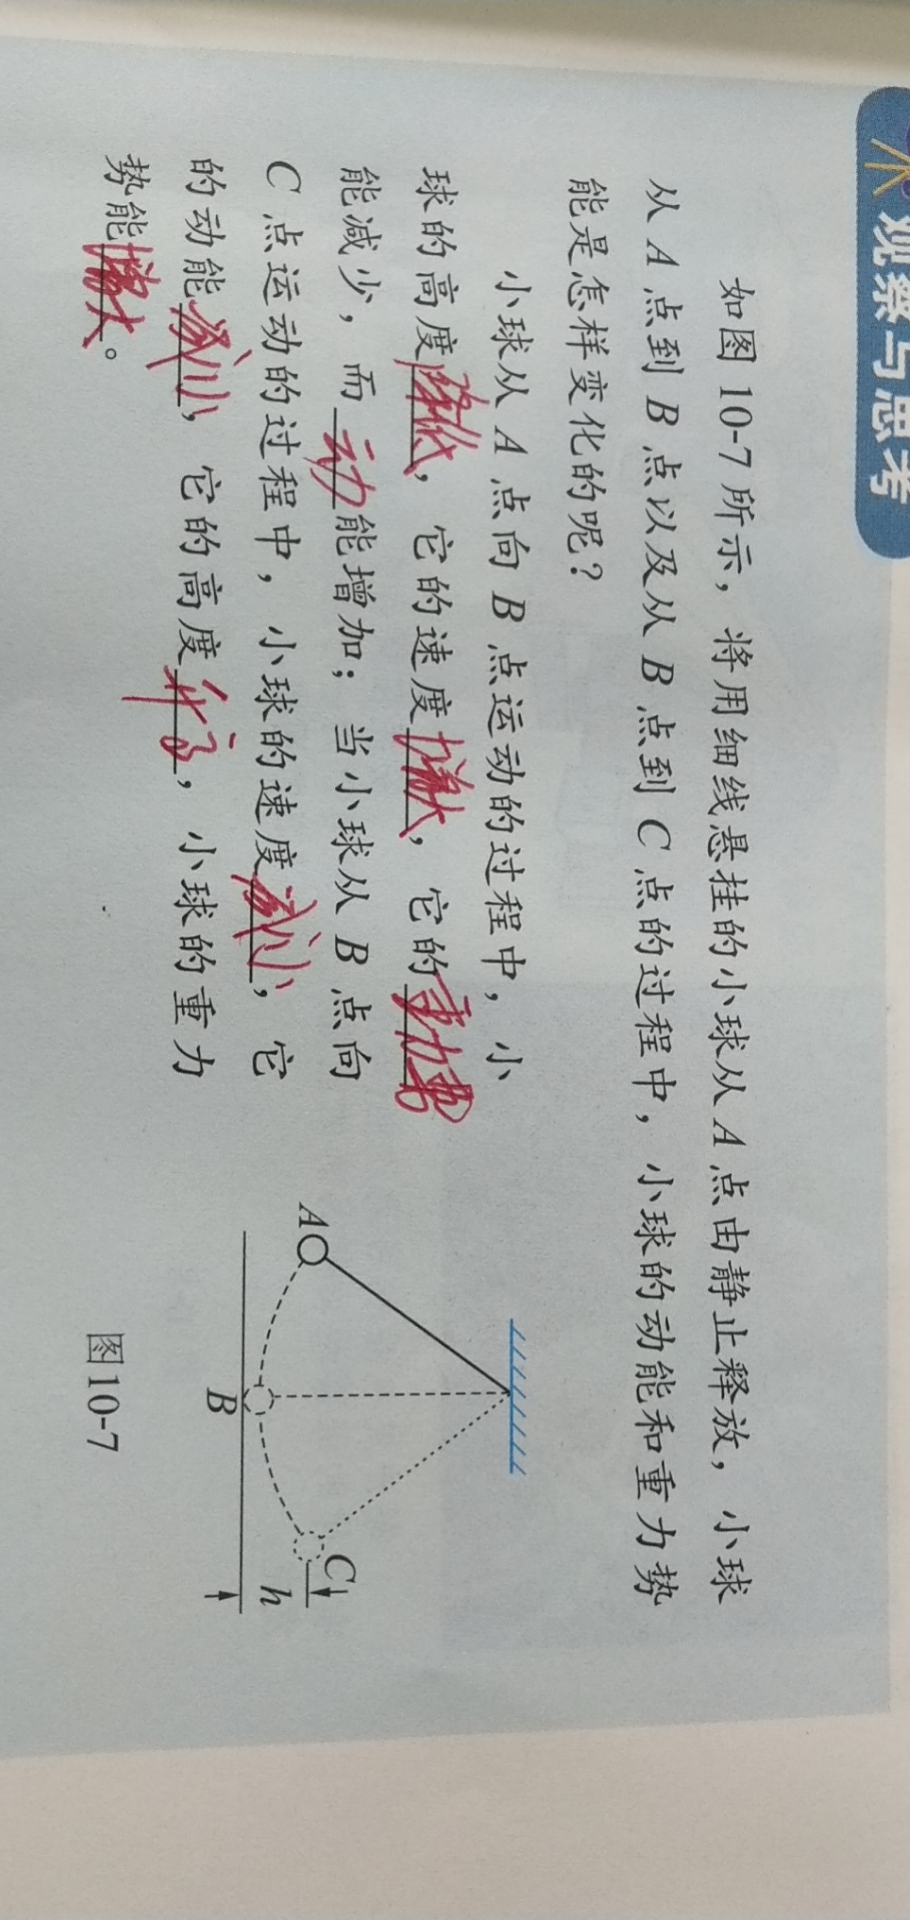 观察与思考
如图 10-7 所示，将用细线悬挂的小球从 A 点由静止释放，小球
从 A 点到 B 点以及从 B 点到 C 点的过程中，小球的动能和重力势
能是怎样变化的呢？
小球从 A 点向 B 点运动的过程中，小
球的高度降低，它的速度增大，它的重力势
能减少，而动能增加；当小球从 B 点向
C 点运动的过程中，小球的速度减小，它
的动能减小，它的高度升高，小球的重力
势能增大。
A
B
C
h
图10-7